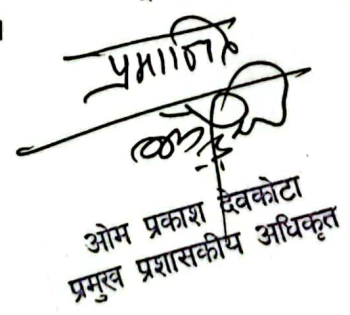 प्रमाणित
ओम प्रकाश देवकोटा
प्रमुख प्रशासकीय अधिकृत